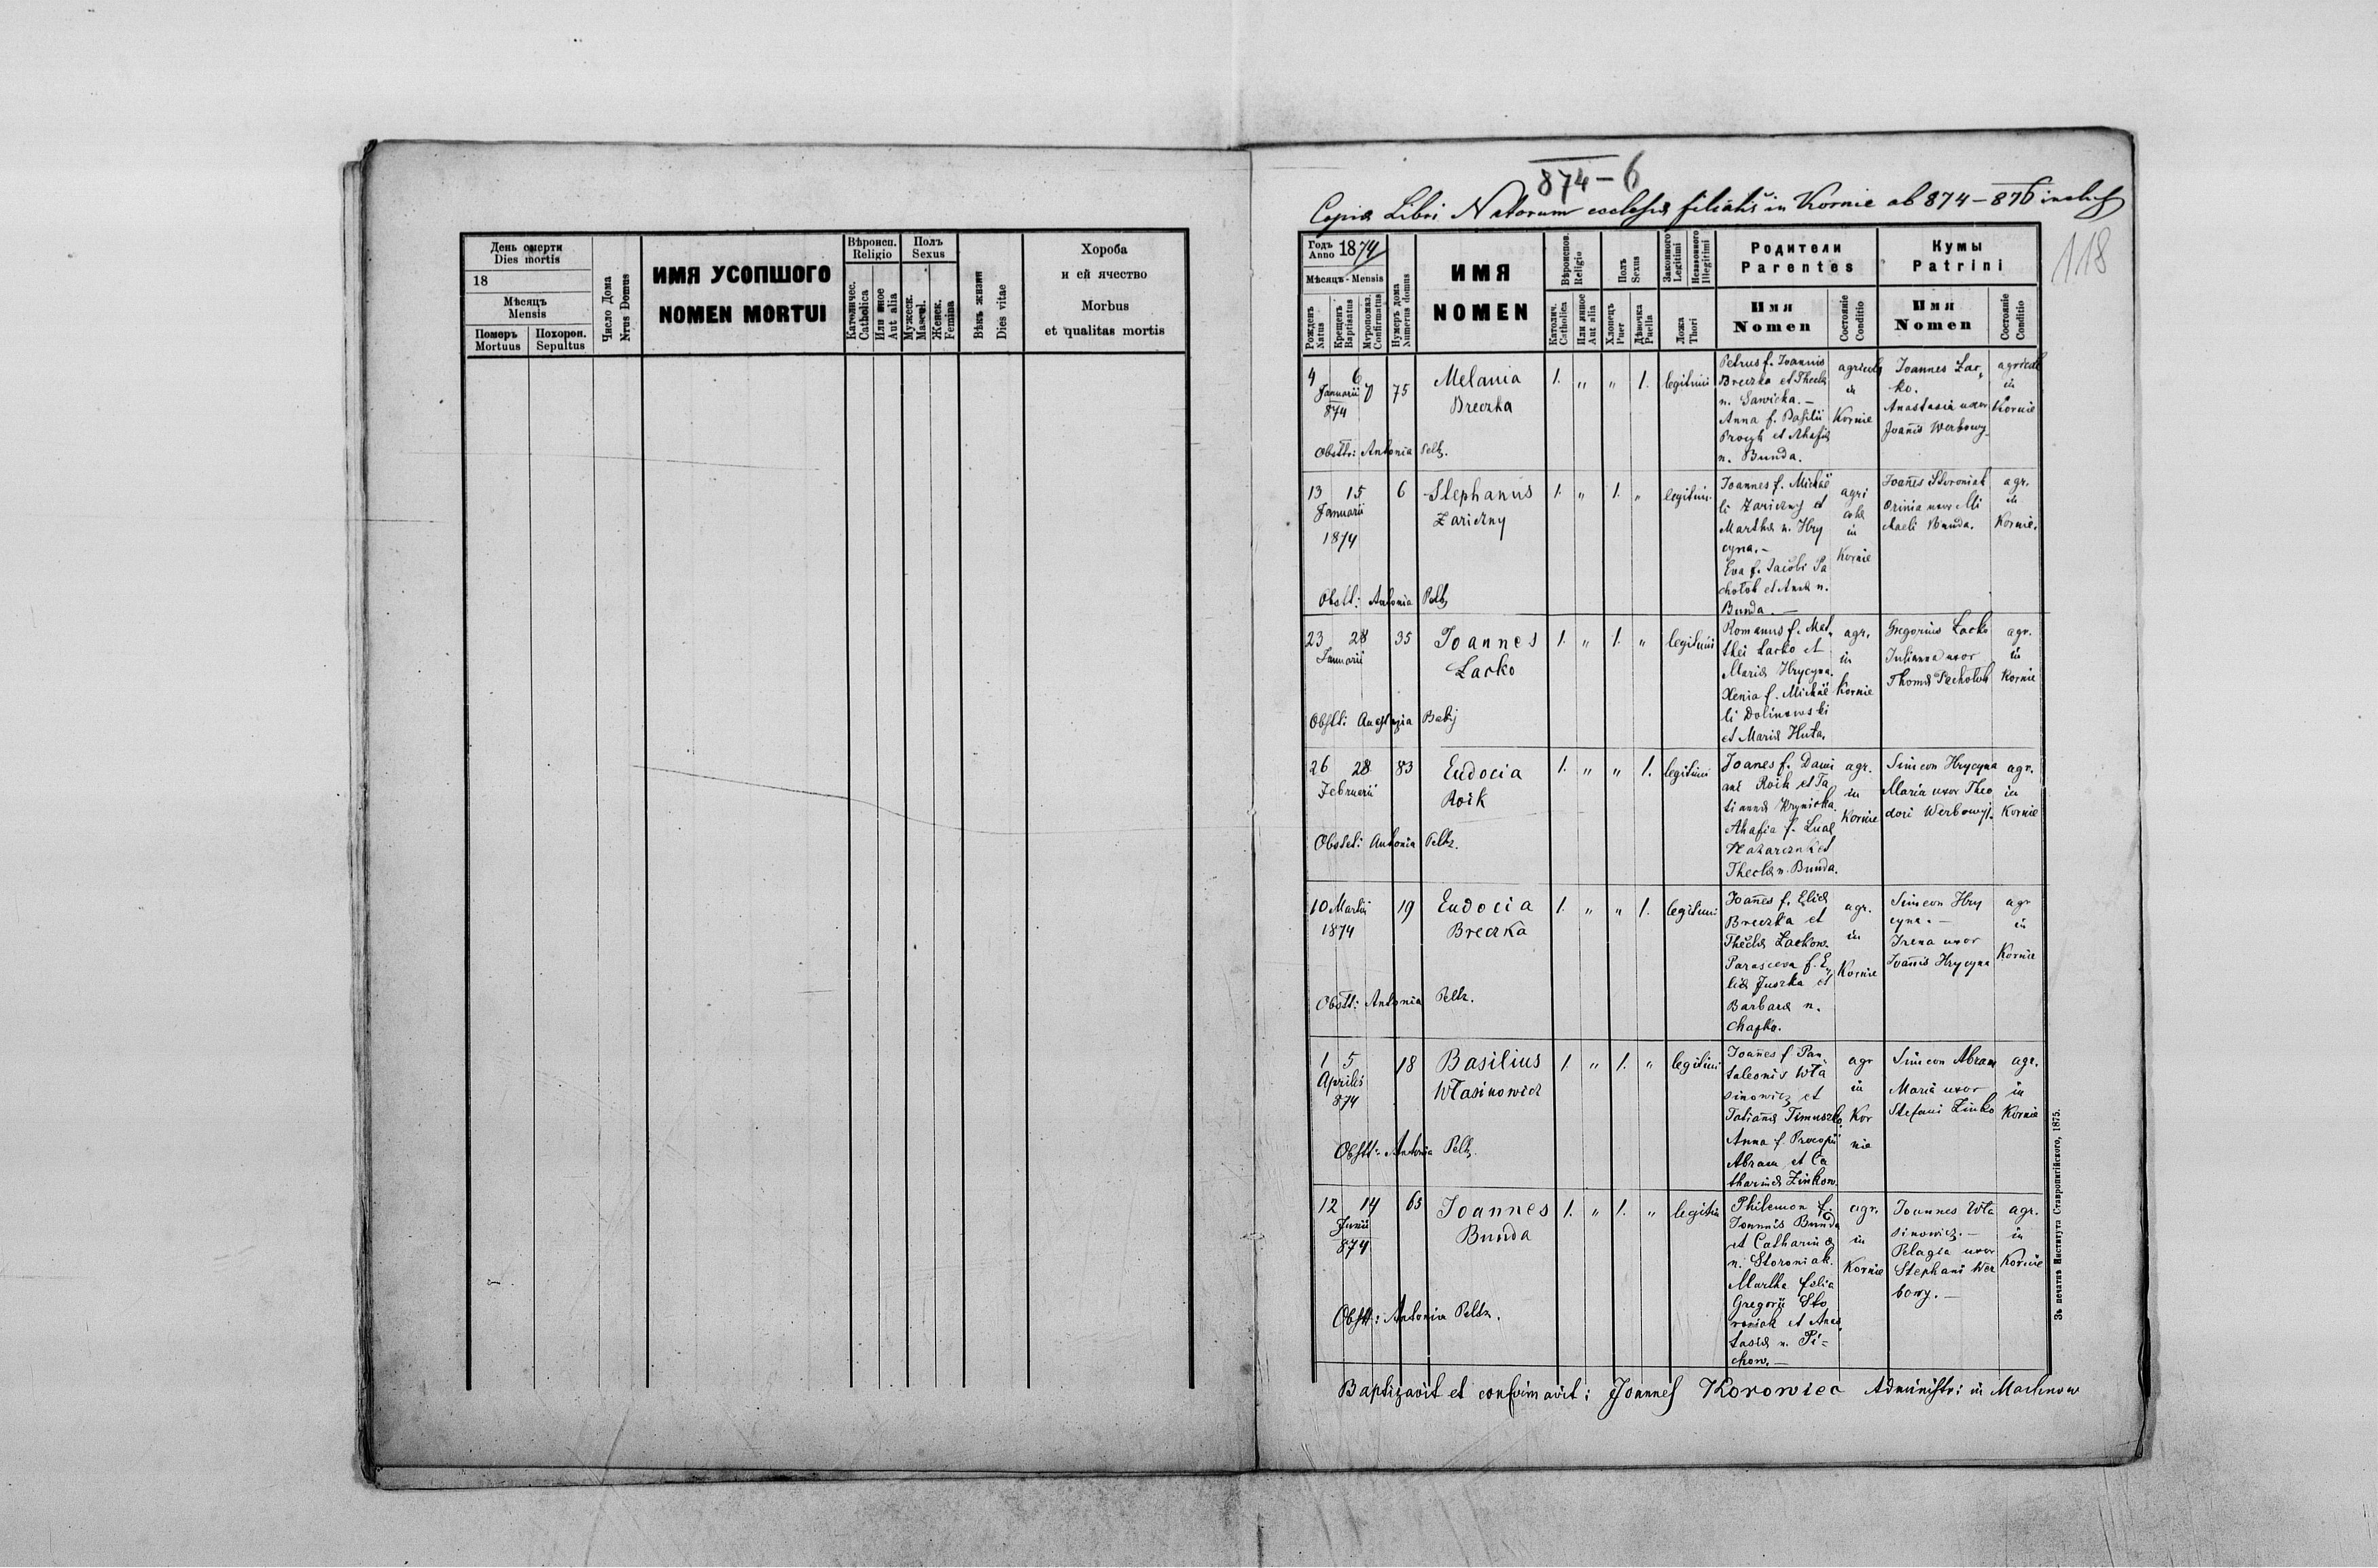 День смерти
Dies mortis
18
Мѣсяцъ
Mensis
Померъ
Mortuus
Похорон.
Sepultus
Число Дома
Nrus Domus
ИМЯ УСОПШОГО
NOMEN MORTUI
Вѣроисп.
Religio
Католичес.
Catholica
Или иное
Aut alia
Полъ
Sexus
Мужеск.
Mascul.
Женск.
Femina
Вѣкъ жизни
Dies vitae
Хороба
и ей ячество
Morbus
et qualitas mortis
874-6
Copia Libri Natorum ecclesiæ filialis in Kornie ab 874-876 inclus
118
Годъ
Anno
1874
Мѣсяцъ - Mensis
Рожденъ
Natus
Крещенъ
Baptisatus
Муропомаз.
Confirmatus
Нумеръ дома
Numerus domus
ИМЯ
NOMEN
Вѣроиспов.
Religio
Католич.
Catholica
Или иное
Aut alia
Полъ
Sexus
Хлопецъ
Puer
Дѣвочка
Puella
Законного
Legitimi
Незаконного
Illegitimi
Ложа
Thori
Родители
Parentes
Имя
Nomen
Состояніе
Conditio
Кумы
Patrini
Имя
Nomen
Состояніе
Conditio
4 6
Januarii
874
75
Melania
Breczka
1. " " 1.
legitimi
Petrus f. Joannis
Breczka et Theclæ
n. Sawicka.-
Anna f. Basilii
et Ahafiæ
n. Bunda.
agricola
in
Kornie
Joannes Lac,
ko.
Anastasia uxor
Joanis Werbowy
agricolæ
in
Kornie
Obstr: Antonia Peltz.
13 15
Januarii
1874
6
Stephanus
Zariczny
1. " 1. "
legitim.
Joannes f. Michae
li Zariczny et
Marthæ n. Hry
cyna.-
Eva f. Jacobi Pa
chołok et Annæ n.
Bunda.-
agri
colæ
in
Kornie
Joanes Storoniak
Orinia uxor Mi
chaeli Bunda.
agr.
in
Kornie.
Obstt: Antonia Peltz
23 28
Januarii
35
Joannes
Lacko
1. " 1. "
legitimi
Romanus f. Mat,
thei Lacko et
Mariæ Hrycyna.
Xenia f. Michae
li Dolinowski
et Mariæ Huta.
agr.
in
Kornie
Gregorius Lacko
Julianna uxor
Thomæ Pachołok
agr.
in
Kornie
Obstt: Anastazia Babij
26 28
Februarii
83
Eudocia
Roik
1. " " 1.
legitimi
Joanes f. Dami
ani Roik et Ta
tiannæ Krynicka.
Ahafia f. Lucæ
Nazarczuk et
Theclæ n. Bunda.
agr.
in
Kornie
Simeon Hrycyna
Maria uxor Theo
dori Werbowyj.
agr.
in
Kornie
Obstet: Antonia Peltz.
10 Martii
1874
19
Eudocia
Breczka
1. " " 1.
legitimi
Joanes f. Eliæ
Breczka et
Theclæ Lackow.
Parasceva f. E,
liæ Juszka et
Barbaræ n.
Chapko.
agr.
in
Kornie
Simeon Hry
cyna.-
Irena uxor
Joanis Hrycyna
agr
in
Kornie
Obstt: Antonia Peltz.
1 5
Aprilis
874
18
Basilius
Własinowicz
1. " 1. "
legitimi
Joanes f Pan,
taleonis Wła
sinowicz et
Tatiannæ Timuszko.
Anna f. Procopii
Abram et Ca
tharinæ Zinkow.
agr
in
Kor
nie
Simeon Abram
Maria uxor
Stefani Zinko
agr.
in
Kornie
Obstt: Antonia Peltz.
12 14
Junii
874
65
Joannes
Bunda
1. " 1. "
legitim
Philemon f.
Joannis Bunda
et Catharinæ
n. Storoniak.
Martha filia
Gregorii Sto
roniak et Anas,
tasiæ n. Pi=
chow.-
agr.
in
Kornie
Joannes Wła
sinowicz.-
Pelagia uxor
Stephani Wer
bowy.-
agr.
in
Kornie
Obstt: Antonia Peltz.
Baptizavit et confirmavit: Joannes Korowiec Administr: in Machnow
Зъ печатнѣ Института Ставропигійского, 1875.